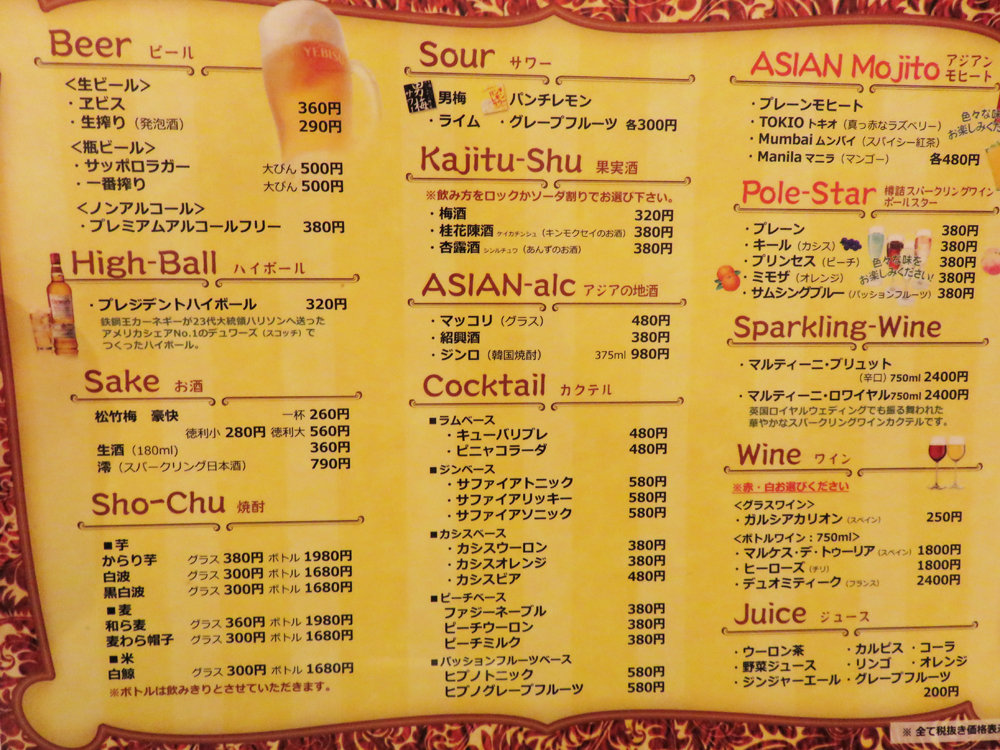 Beer ビール
YEBISU
<生ビール>
・ヱビス 360円
・生搾り（発泡酒） 290円
<瓶ビール>
・サッポロラガー 大びん 500円
・一番搾り 大びん 500円
<ノンアルコール>
・プレミアムアルコールフリー 380円
High-Ball ハイボール
・プレジデントハイボール 320円
鉄鋼王カーネギーが23代大統領ハリソンへ送った
アメリカシェアNo.1のデュワーズ（スコッチ）で
つくったハイボール。
Sake お酒
松竹梅 豪快 一杯 260円
徳利小 280円 徳利大 560円
生酒（180ml） 360円
澪（スパークリング日本酒） 790円
Sho-Chu 焼酎
■芋
からり芋 グラス 380円 ボトル 1980円
白波 グラス 300円 ボトル 1680円
黒白波 グラス 300円 ボトル 1680円
■麦
和ら麦 グラス 360円 ボトル 1980円
麦わら帽子 グラス 300円 ボトル 1680円
■米
白鯨 グラス 300円 ボトル 1680円
※ボトルは飲みきりとさせていただきます。
Sour サワー
男梅 男梅 パンチレモン
・ライム ・グレープフルーツ 各300円
Kajitu-Shu 果実酒
※飲み方をロックかソーダ割りでお選び下さい。
・梅酒 320円
・桂花陳酒 ケイカチンシュ（キンモクセイのお酒） 380円
・杏露酒 シンルチュウ（あんずのお酒） 380円
ASIAN-alc アジアの地酒
・マッコリ（グラス） 480円
・紹興酒 380円
・ジンロ（韓国焼酎） 375ml 980円
Cocktail カクテル
■ラムベース
・キューバリブレ 480円
・ピニャコラーダ 480円
■ジンベース
・サファイアトニック 580円
・サファイアリッキー 580円
・サファイアソニック 580円
■カシスベース
・カシスウーロン 380円
・カシスオレンジ 380円
・カシスビア 480円
■ピーチベース
ファジーネーブル 380円
ピーチウーロン 380円
ピーチミルク 380円
■パッションフルーツベース
ヒプノトニック 580円
ヒプノグレープフルーツ 580円
ASIAN Mojito アジアン
モヒート
・プレーンモヒート
・TOKIO トキオ（真っ赤なラズベリー）
・Mumbai ムンバイ（スパイシー紅茶）
・Manila マニラ（マンゴー） 各480円
色々な味を
お楽しみくだ
Pole-Star 樽詰スパークリングワイン
ポールスター
・プレーン 380円
・キール（カシス） 380円
・プリンセス（ピーチ） 380円
・ミモザ（オレンジ） 380円
・サムシングブルー（パッションフルーツ） 380円
色々な味を
お楽しみください!
Sparkling-Wine
・マルティーニ・ブリュット
（辛口）750ml 2400円
・マルティーニ・ロワイヤル 750ml 2400円
英国ロイヤルウェディングでも振る舞われた
華やかなスパークリングワインカクテルです。
Wine ワイン
※赤・白お選びください
<グラスワイン>
・ガルシアカリオン（スペイン） 250円
<ボトルワイン：750ml>
・マルケス・デ・トゥーリア（スペイン） 1800円
・ヒーローズ（チリ） 1800円
・デュオミティーク（フランス） 2400円
Juice ジュース
・ウーロン茶 ・カルピス ・コーラ
・野菜ジュース ・リンゴ ・オレンジ
・ジンジャーエール ・グレープフルーツ
200円
※ 全て税抜き価格表